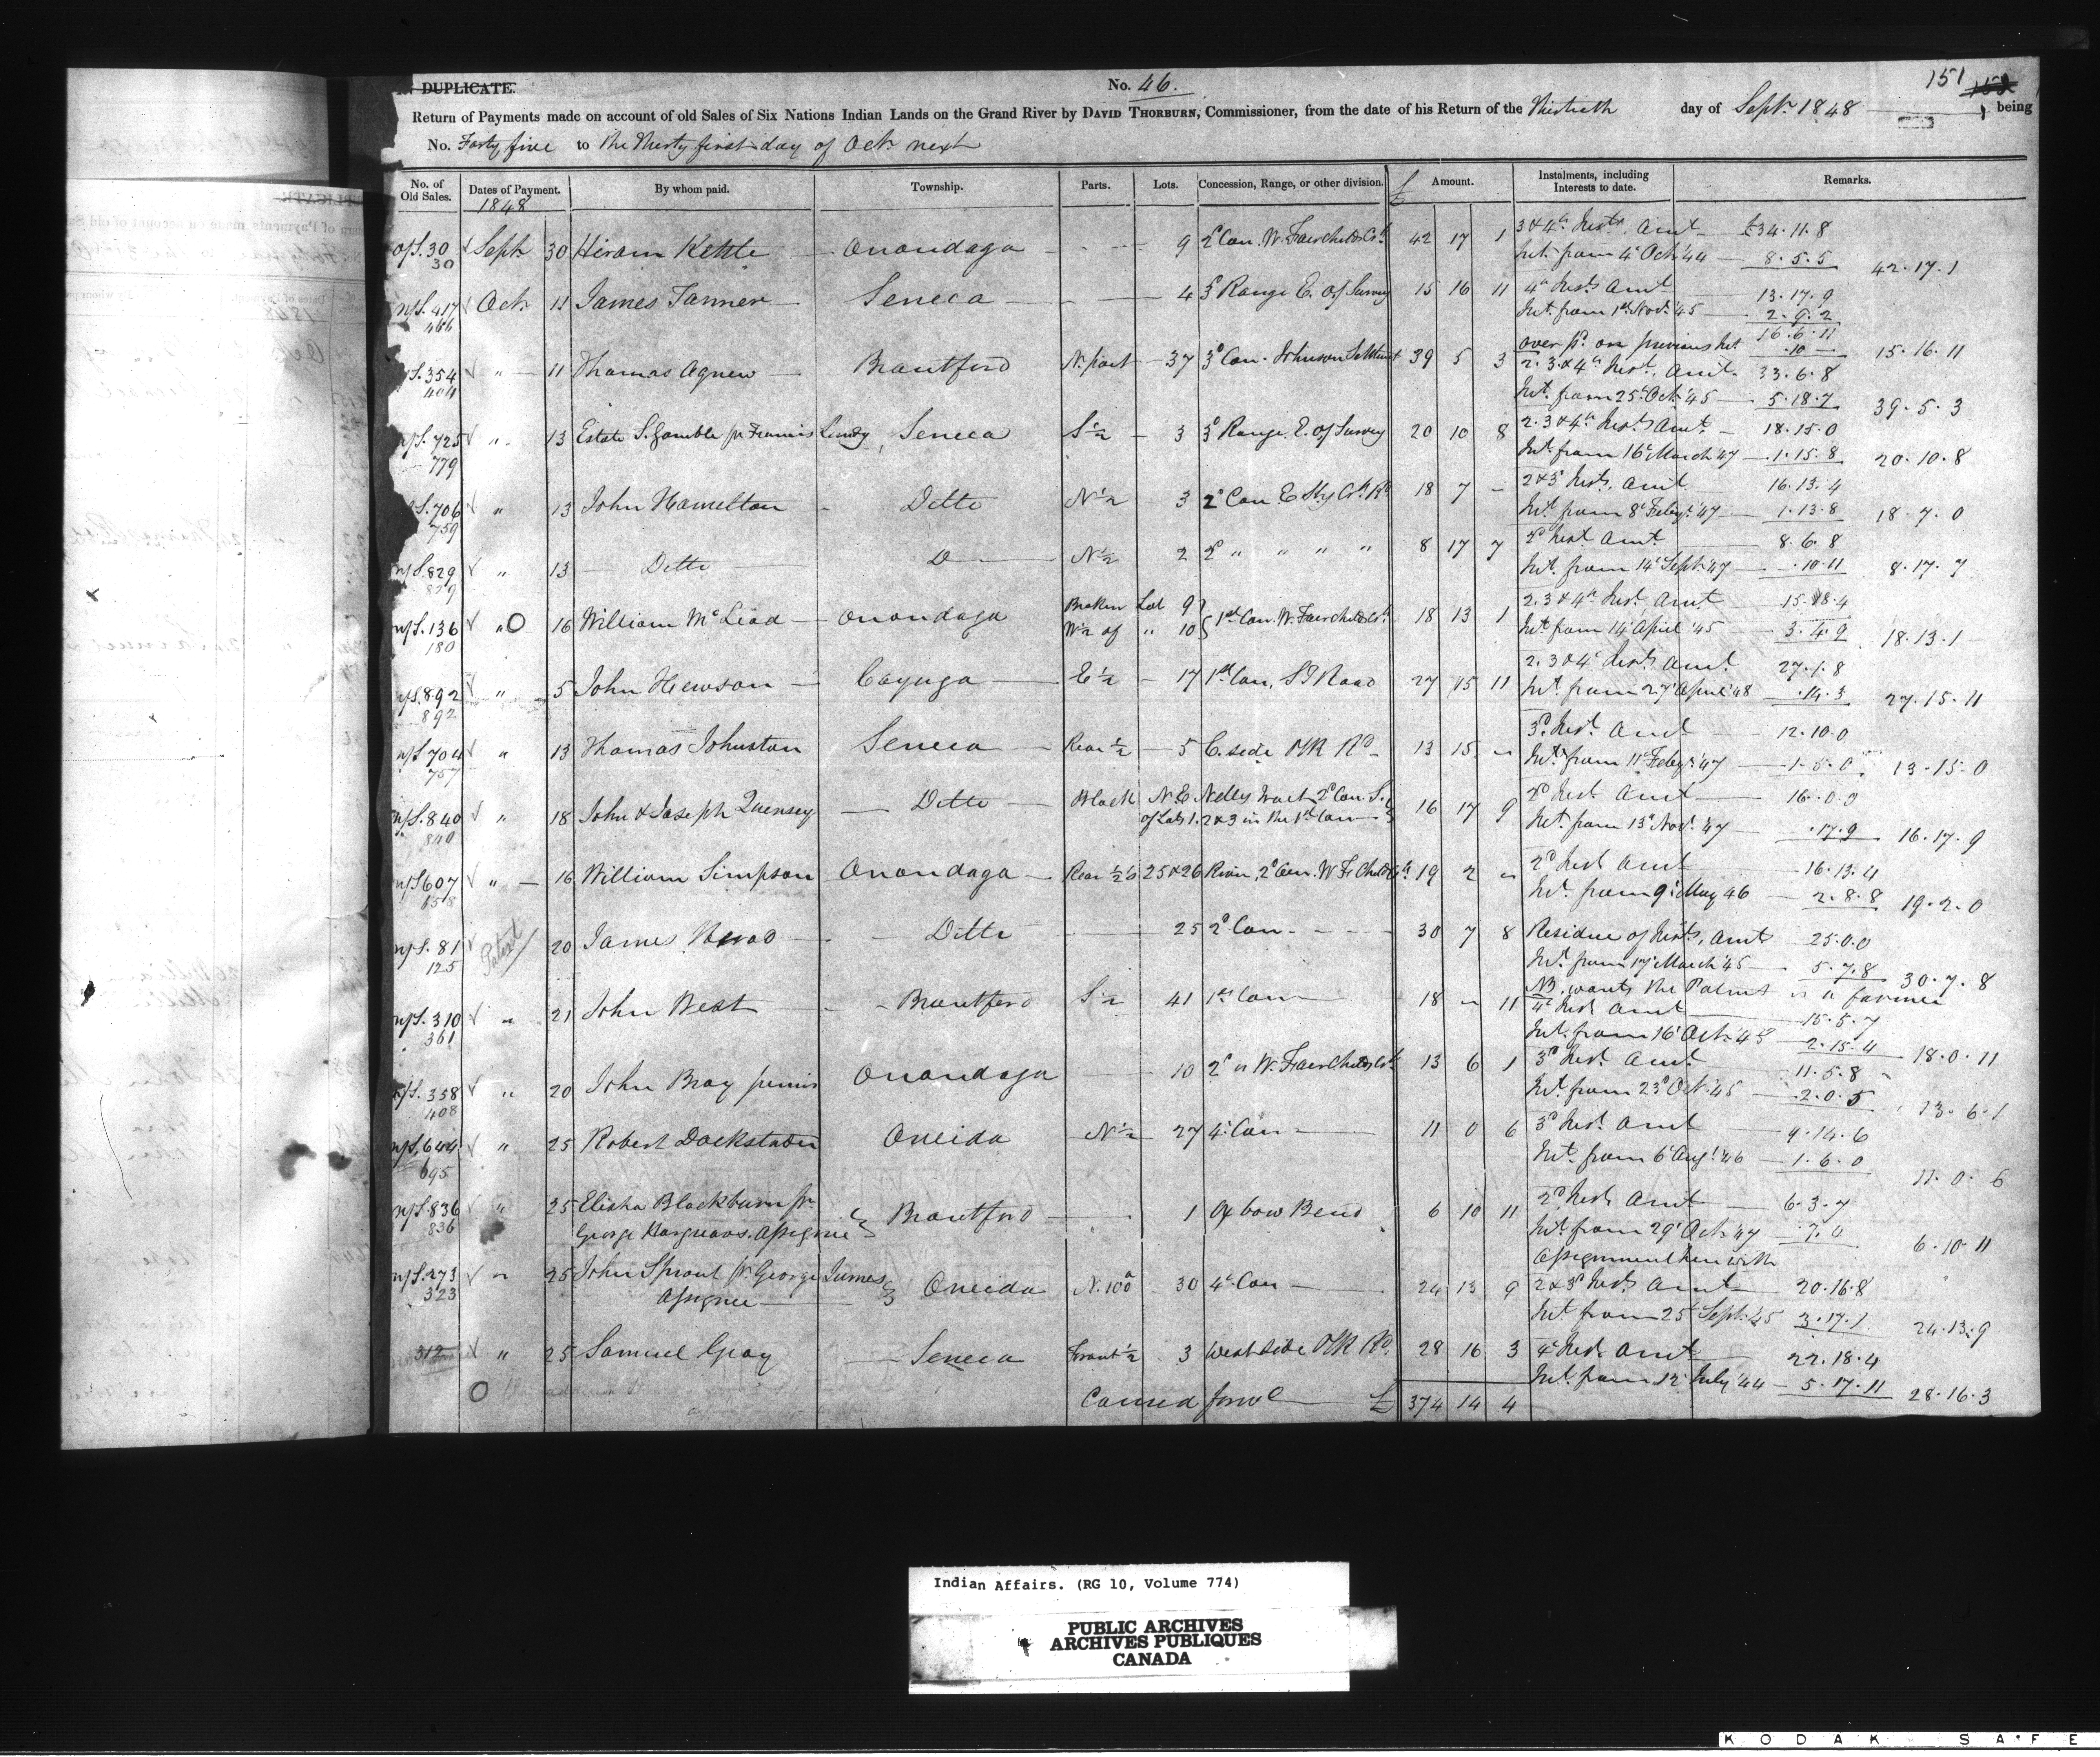 151 152
IN DUPLICATE.
No. 46.
Return of Payments made on account of old Sales of Six Nations Indian Lands on the Grand River by DAVID THORBURN, Commissioner, from the date of his Return of the Thirtieth day of Sept. 1848, being
No. Forty five to the Thirty first day of Oct. next
No. of Old Sales. Dates of Payment. 1848 By whom paid. Township. Parts. Lots. Concession, Range, or other division. £ Amount. Instalments, including Interests to date. Remarks.
o/S. 30 Sept. 30 Hiram Kettle Onondaga 9 2d Con. W. Fairchilds Ck. 42 17 1 3 & 4th Insts. Amt. £34.11.8
30 Int. from 4th Oct. 44 8.5.5 42.17.1
n/S. 417 Oct. 11 James Tanner Seneca 4 3d Range E. of Survey 15 16 11 4th Inst. Amt. 13.17.9
466 Int. from 1st Nov. 45 2.9.2
16.6.11
over pd. on previous Int. .10 — 15.16.11
S. 354 " 11 Thomas Agnew Brantford N. part 37 3d Con. Johnson Settlement 39 5 3 2. 3. & 4th Inst. Amt. 33.6.8
404 Int. from 25th Oct. 45 5.18.7 39.5.3
n/S. 725 " 13 Estate S. Gamble pr Francis Lundy Seneca S ½ 3 3d Range E. of Survey 20 10 8 2. 3 & 4th Insts. Amt. 18.15.0
779 Int. from 16th March 47 1.15.8 20.10.8
S. 706 " 13 John Hamelton Ditto N ½ 3 2d Con E. Sty Ck. Rd 18 7 - 2 & 3d Insts. Amt. 16.13.4
759 Int. from 8th Feby. 47 1.13.8 18.7.0
n/S. 829 " 13 Ditto Do N ½ 2 2d " " " " 8 17 7 2d Inst. Amt. 8.6.8
829 Int. from 14th Sept. 47 .10.11 8.17.7
n/S. 136 " 16 William McLead Onondaga Broken Lot 9 1st Con. W. Fairchilds Ck. 18 13 1 2. 3 & 4th Inst. Amt. 15.8.4
180 W ½ of " 10 Int. from 14th April 45 3.4.9 18.13.1
n/S. 892 " 5 John Hewson Cayuga E ½ 17 1st Con, ST Road 27 15 11 2. 3 & 4th Insts. Amt. 27.1.8
892 Int. from 27th April 48 .14.3 27.15.11
n/S 704 " 13 Thomas Johnston Seneca Rear ½ 5 E. side PR Rd 13 15 - 3d Inst. Amt 12.10.0
757 Int. from 11th Feby. 47 1.5.0 13.15.0
n/S. 840 " 18 John & Joseph Quensey Ditto Block N.E. Nelles tract 2d Con. S. 16 17 9 2d Inst. Amt 16.0.0
840 of Lots 1. 2 & 3 in the 1st Con Int. from 13th Nov. 47 .17.9 16.17.9
n/S 607 " 16 William Simpson Onondaga Rear ½s 25 & 26 River, 2d Con. W. Fr. Childs Ck. 19 2 - 2d Inst Amt 16.13.4
658 Int. from 9th May 46 2.8.8 19.2.0
n/S. 81 Patent 20 James Ditto 25 2d Con. 30 7 8 Residue of Insts. Amt 25.0.0
125 Int. from 17th March 45 5.7.8 30.7.8
NB. wants the Patent is a farmer
n/S. 310 " 21 John West Brantford S ½ 41 1st Con 18 - 11 4th Inst. Amt 15.5.7
361 Int. from 16th Oct. 45 2.15.4 18.0.11
n/S. 358 " 20 John Bray junior Onondaga 10 2d " W. Fairchilds Ck. 13 6 1 3d Inst. Amt 11.5.8
408 Int. from 23d Oct. 45 2.0.5 13.6.1
n/S. 644 " 25 Robert Dockstader Oneida N ½ 27 4th Con 11 0 6 3d Inst. Amt 9.14.6
695 Int. from 6th Aug. 46 1.6.0 11.0.6
n/S. 836 " 25 Elisha Blackburn pr Brantford 1 Oxbow Bend 6 10 11 2d Inst. Amt 6.3.7
836 George Hargreaves, Assignee Int. from 29th Oct. 47 .7.4 6.10.11
Assignment herewith
n/S. 273 " 25 John Sprout pr. George James Oneida N. 100a 30 4th Con 24 13 9 2 & 3d Insts. Amt 20.16.8
323 Assignee Int. from 25 Sept. 45 3.17.1 24.13.9
312 " 25 Samuel Gray Seneca Front ½ 3 West side PR Rd. 28 16 3 4th Inst. Amt 22.18.4
Int. from 12th July 44 5.17.11 28.16.3
Carried forwd £ 374 14 4
Indian Affairs. (RG 10, Volume 774)
PUBLIC ARCHIVES
ARCHIVES PUBLIQUES
CANADA
KODAK SAFE